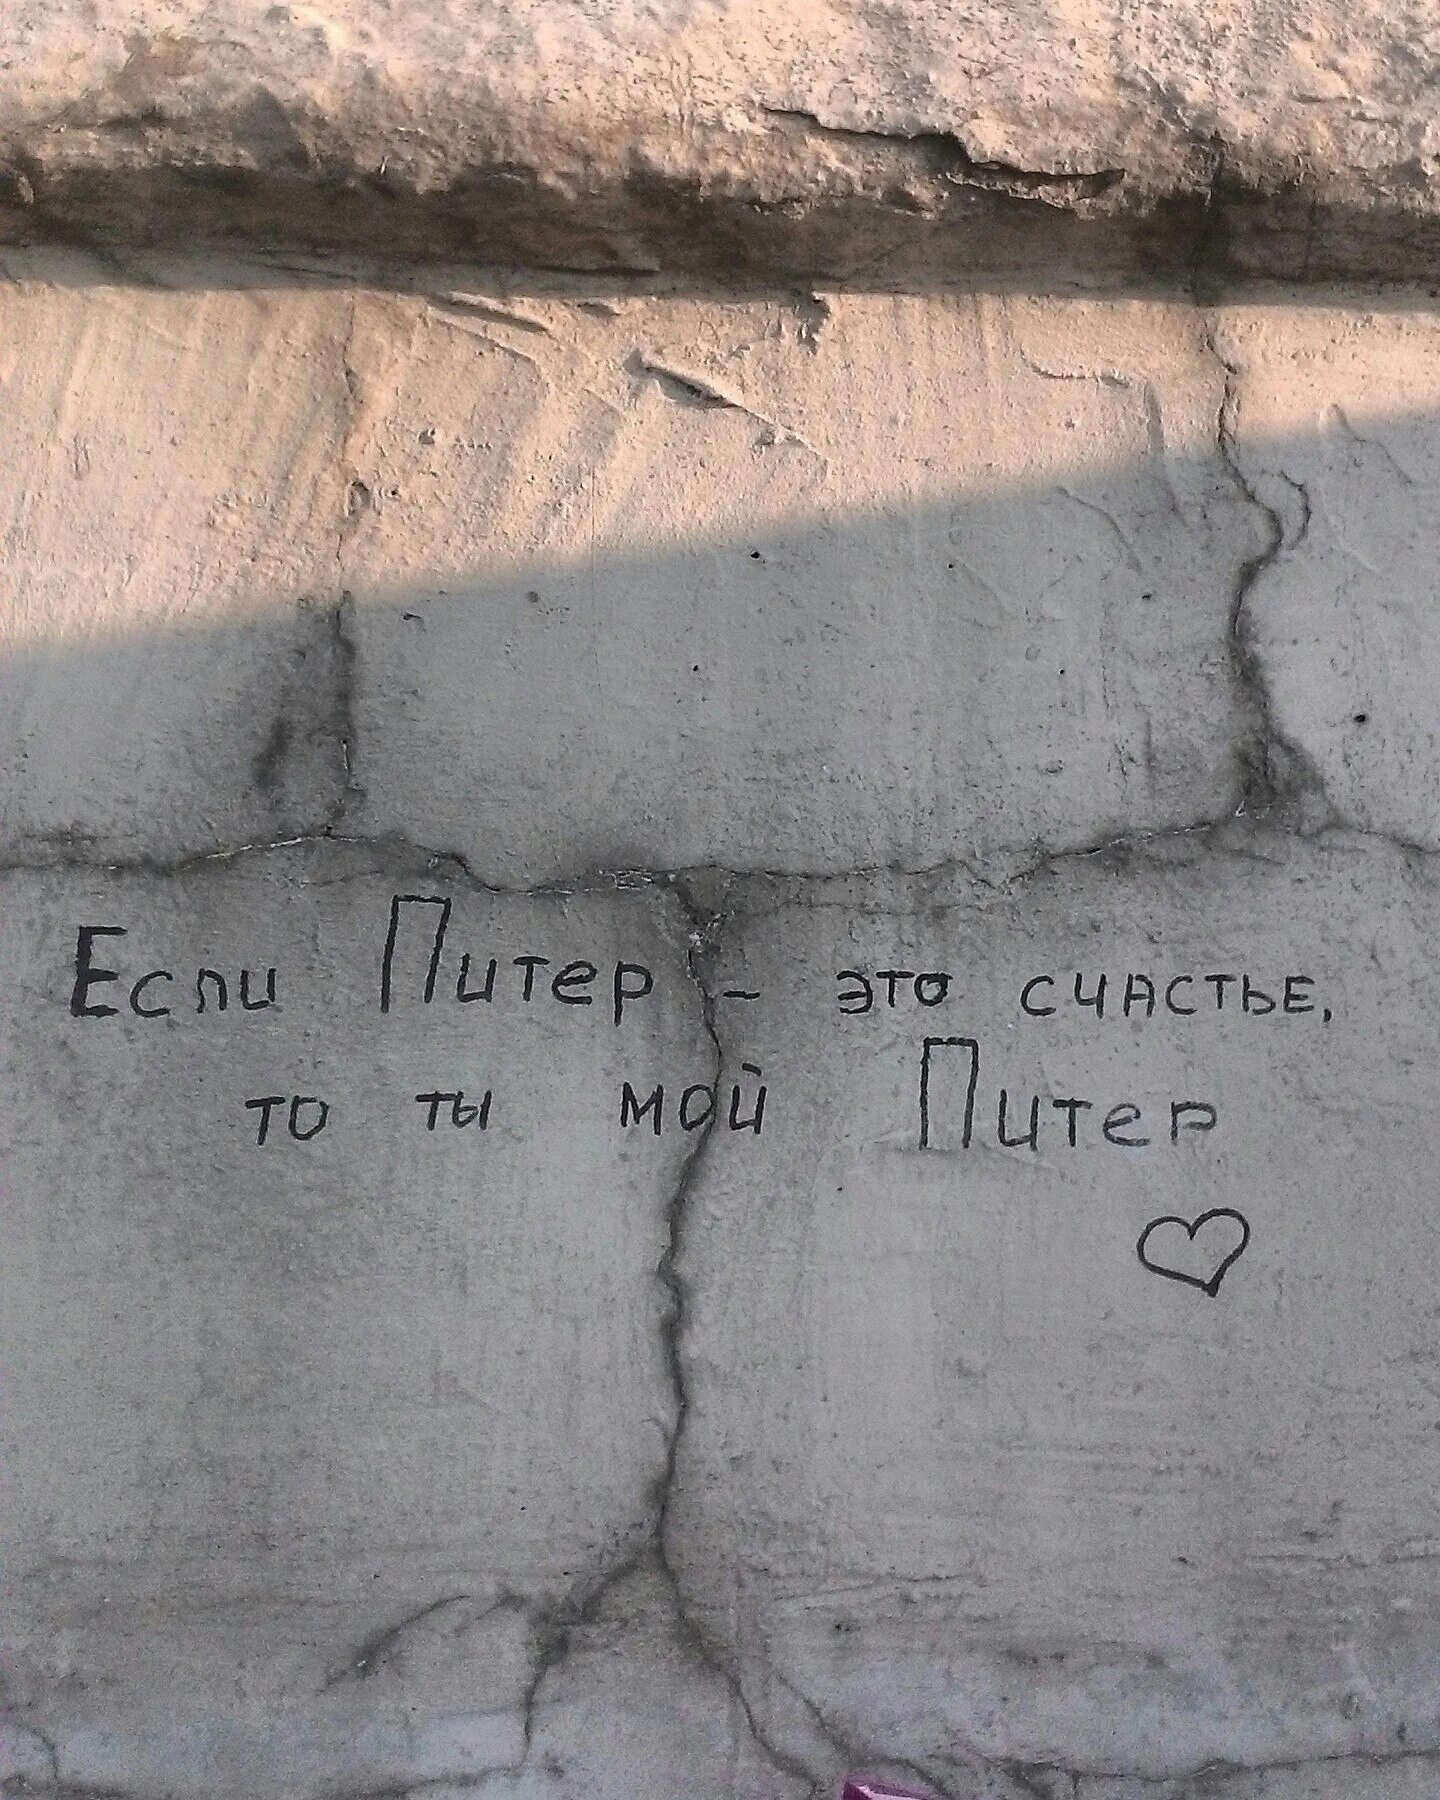 Если Питер - это счастье,
то ты мой Питер